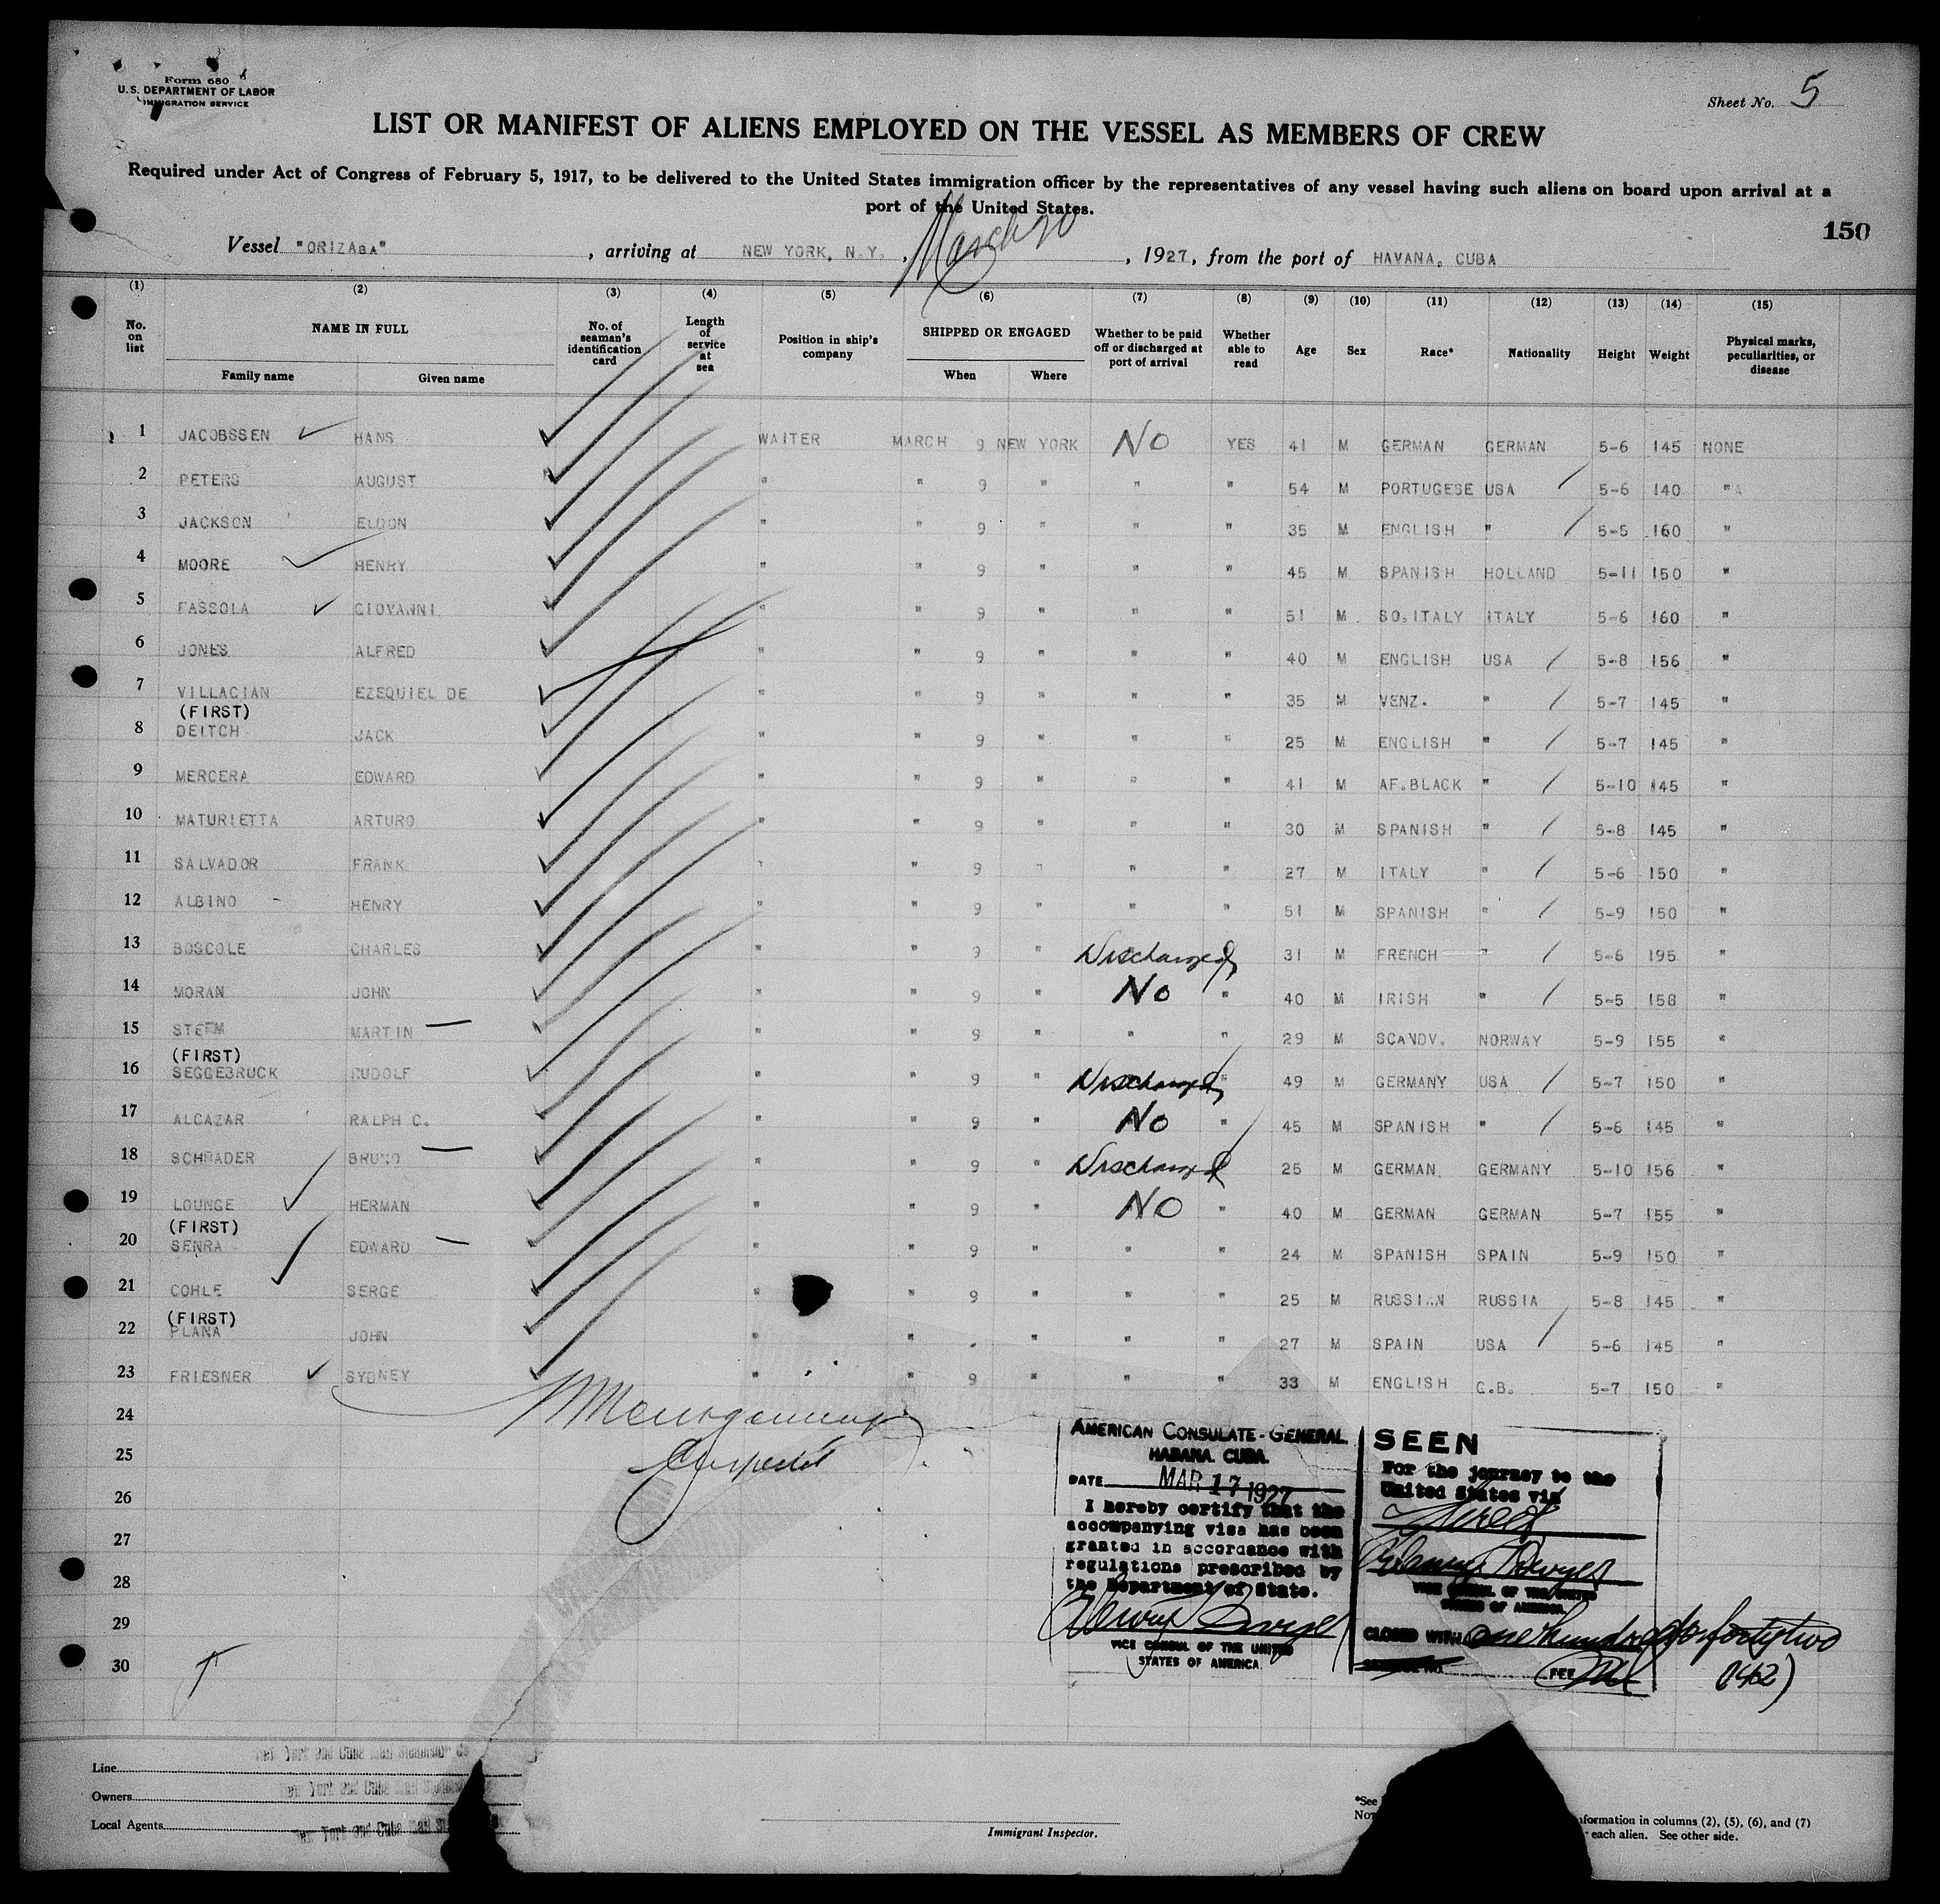 Form 680
U.S. DEPARTMENT OF LABOR
IMMIGRATION SERVICE
Sheet No. 5
LIST OR MANIFEST OF ALIENS EMPLOYED ON THE VESSEL AS MEMBERS OF CREW
Required under Act of Congress of February 5, 1917, to be delivered to the United States immigration officer by the representatives of any vessel having such aliens on board upon arrival at a
port of the United States.
150
Vessel "ORIZABA", arriving at NEW YORK, N.Y., March 20, 1927, from the port of HAVANA, CUBA
(1) (2) (3) (4) (5) (6) (7) (8) (9) (10) (11) (12) (13) (14) (15)
No. on list NAME IN FULL Family name Given name No. of seaman's identification card Length of service at sea Position in ship's company SHIPPED OR ENGAGED When Where Whether to be paid off or discharged at port of arrival Whether able to read Age Sex Race* Nationality Height Weight Physical marks, peculiarities, or disease
1 JACOBSSEN HANS WAITER MARCH 9 NEW YORK NO YES 41 M GERMAN GERMAN 5-6 145 NONE
2 PETERS AUGUST " " 9 " " " 54 M PORTUGESE USA 5-6 140 "
3 JACKSON ELDON " " 9 " " " 35 M ENGLISH " 5-5 160 "
4 MOORE HENRY " " 9 " " " 45 M SPANISH HOLLAND 5-11 150 "
5 FASSOLA GIOVANNI " " 9 " " " 51 M SO.ITALY ITALY 5-6 160 "
6 JONES ALFRED " " 9 " " " 40 M ENGLISH USA 5-8 156 "
7 VILLACIAN EZEQUIEL DE " " 9 " " " 35 M VENZ. " 5-7 145 "
(FIRST)
8 DEITCH JACK " " 9 " " " 25 M ENGLISH " 5-7 145 "
9 MERCERA EDWARD " " 9 " " " 41 M AF.BLACK " 5-10 145 "
10 MATURIETTA ARTURO " " 9 " " " 30 M SPANISH " 5-8 145 "
11 SALVADOR FRANK " " 9 " " " 27 M ITALY " 5-6 150 "
12 ALBINO - HENRY " " 9 " " " 51 M SPANISH " 5-9 150 "
13 BOSCOLE CHARLES " " 9 " Discharged 31 M FRENCH " 5-6 195 "
14 MORAN JOHN " " 9 " No " 40 M IRISH " 5-5 158 "
15 STEEM MARTIN " " 9 " " " 29 M SCANDV. NORWAY 5-9 155 "
(FIRST)
16 SEGGEBRUCK RUDOLF " " 9 " Discharged " 49 M GERMANY USA 5-7 150 "
17 ALCAZAR RALPH C. " " 9 " No " 45 M SPANISH " 5-6 145 "
18 SCHRADER BRUNO " " 9 " Discharged 25 M GERMAN GERMANY 5-10 156 "
19 LOUNGE HERMAN " " 9 " NO " 40 M GERMAN GERMAN 5-7 155 "
(FIRST)
20 SENRA EDWARD " " 9 " " " 24 M SPANISH SPAIN 5-9 150 "
21 COHLE SERGE " " 9 " " " 25 M RUSSIAN RUSSIA 5-8 145 "
(FIRST)
22 PLANA JOHN " " " " " 27 M SPAIN USA 5-6 145 "
23 FRIESNER SYDNEY " " 9 " " " 33 M ENGLISH G.B. 5-7 150 "
24
25
26
27
28
29
30
AMERICAN CONSULATE-GENERAL
HABANA. CUBA.
DATE MAR 17 1927
I hereby certify that the
accompanying visa has been
granted in accordance with
regulations prescribed by
the Department of State.
VICE CONSUL OF THE UNITED
STATES OF AMERICA.
SEEN
For the journey to the
United States via
VICE CONSUL OF THE UNITED
STATES OF AMERICA.
CLOSED WITH One hundred forty two
FEE
(142)
Line New York and Cuba Mail Steamship Co
Owners New York and Cuba Mail
Local Agents New York and Cuba Mail
Immigrant Inspector.
*See
information in columns (2), (5), (6), and (7)
each alien. See other side.